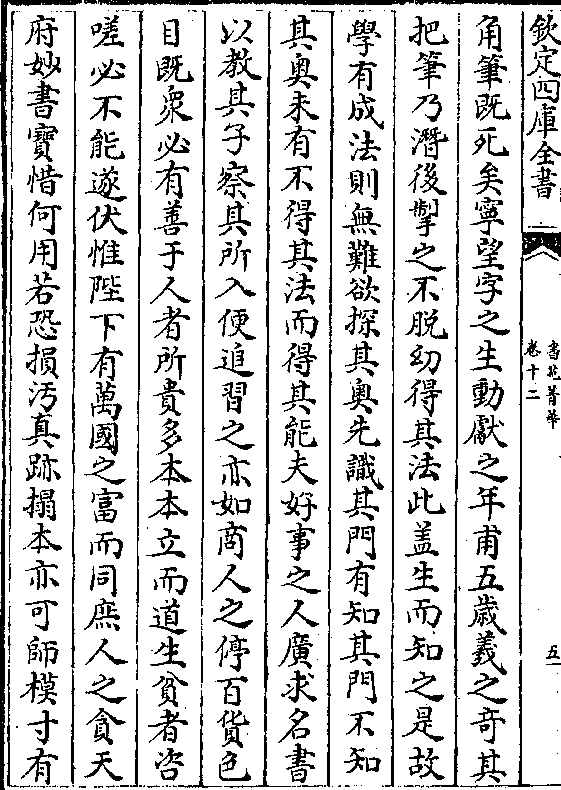 欽定四庫全書
書苑菁華
卷十二
五
角筆既死矣寧望字之生動獻之年甫五歲羲之竒其
把筆乃潛後掣之不脱幼得其法此盖生而知之是故
學有成法則無難欲探其奥先識其門有知其門不知
其奥未有不得其法而得其能夫好事之人廣求名書
以教其子察其所入便追習之亦如商人之停百貨色
目既衆必有善于人者所貴多本本立而道生貧者咨
嗟必不能遂伏惟陛下有萬國之富而同庶人之貪天
府妙書寳惜何用若恐損汚真跡搨本亦可師模寸有